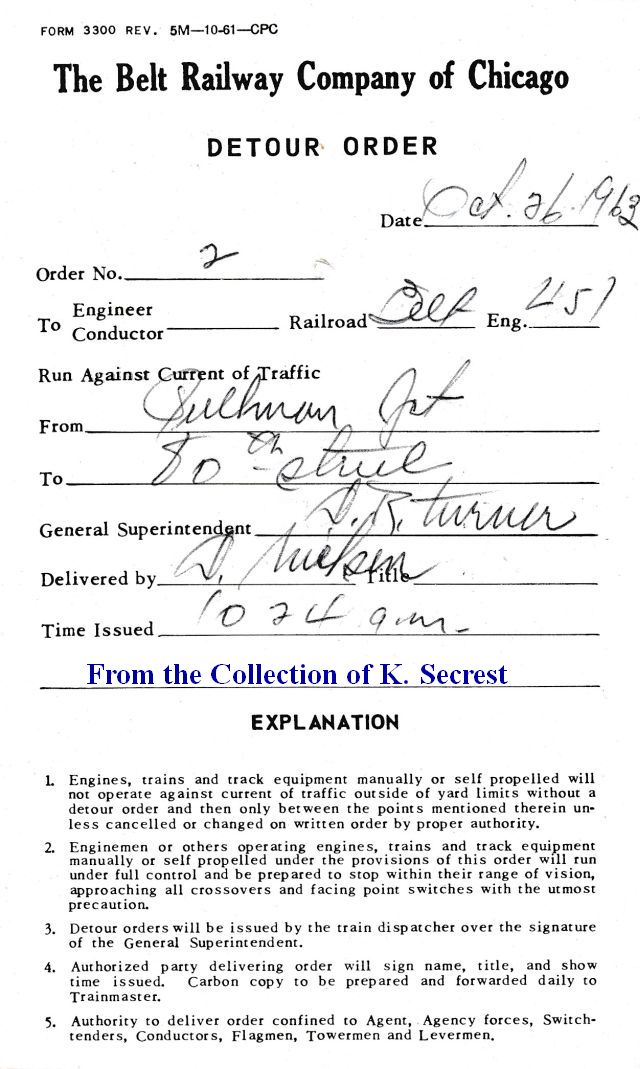 FORM 3300 REV. 5M—10-61—CPC
The Belt Railway Company of Chicago
DETOUR ORDER
Date Oct. 26 1963
Order No. 2
To Engineer Conductor Railroad Belt Eng. 451
Run Against Current of Traffic
From Pullman Jct
To 80th Street
General Superintendent D. B. Turner
Delivered by D. Title
Time Issued 10 24 a.m.
From the Collection of K. Secrest
EXPLANATION
1. Engines, trains and track equipment manually or self propelled will
not operate against current of traffic outside of yard limits without a
detour order and then only between the points mentioned therein un-
less cancelled or changed on written order by proper authority.
2. Enginemen or others operating engines, trains and track equipment
manually or self propelled under the provisions of this order will run
under full control and be prepared to stop within their range of vision,
approaching all crossovers and facing point switches with the utmost
precaution.
3. Detour orders will be issued by the train dispatcher over the signature
of the General Superintendent.
4. Authorized party delivering order will sign name, title, and show
time issued. Carbon copy to be prepared and forwarded daily to
Trainmaster.
5. Authority to deliver order confined to Agent, Agency forces, Switch-
tenders, Conductors, Flagmen, Towermen and Levermen.